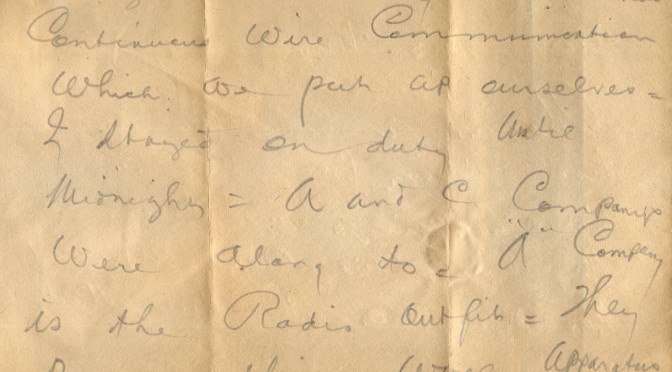 Continuous Wire Communication
Which we put up ourselves =
I stayed on duty Until
Midnight = A and C Companys
Were along to = "A" Company
is the Radio Outfit = They
Apparatus